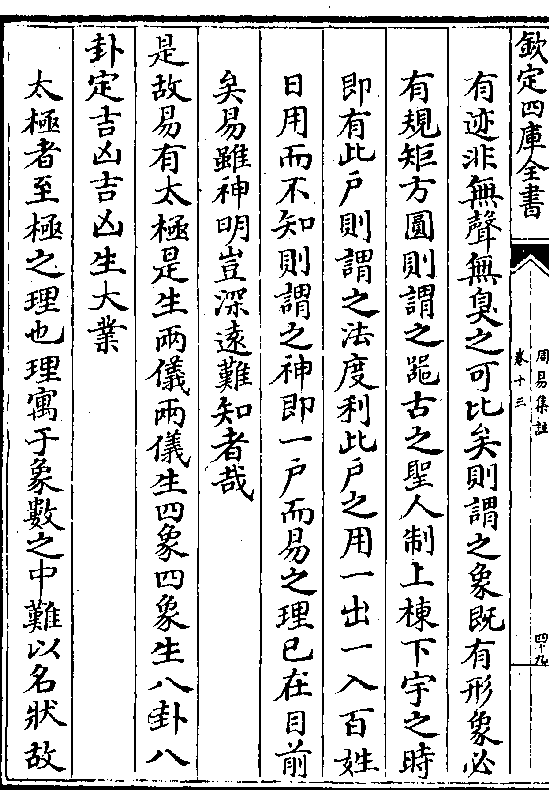 欽定四庫全書
周易集註
卷十三
四十九
有迹非無聲無臭之可比矣則謂之象既有形象必
有規矩方圓則謂之噐古之聖人制上棟下宇之時
即有此戶則謂之法度利此戶之用一出一入百姓
日用而不知則謂之神即一戶而易之理已在目前
矣易雖神明豈深遠難知者哉
是故易有太極是生兩儀兩儀生四象四象生八卦八
卦定吉凶吉凶生大業
太極者至極之理也理寓于象數之中難以名狀故